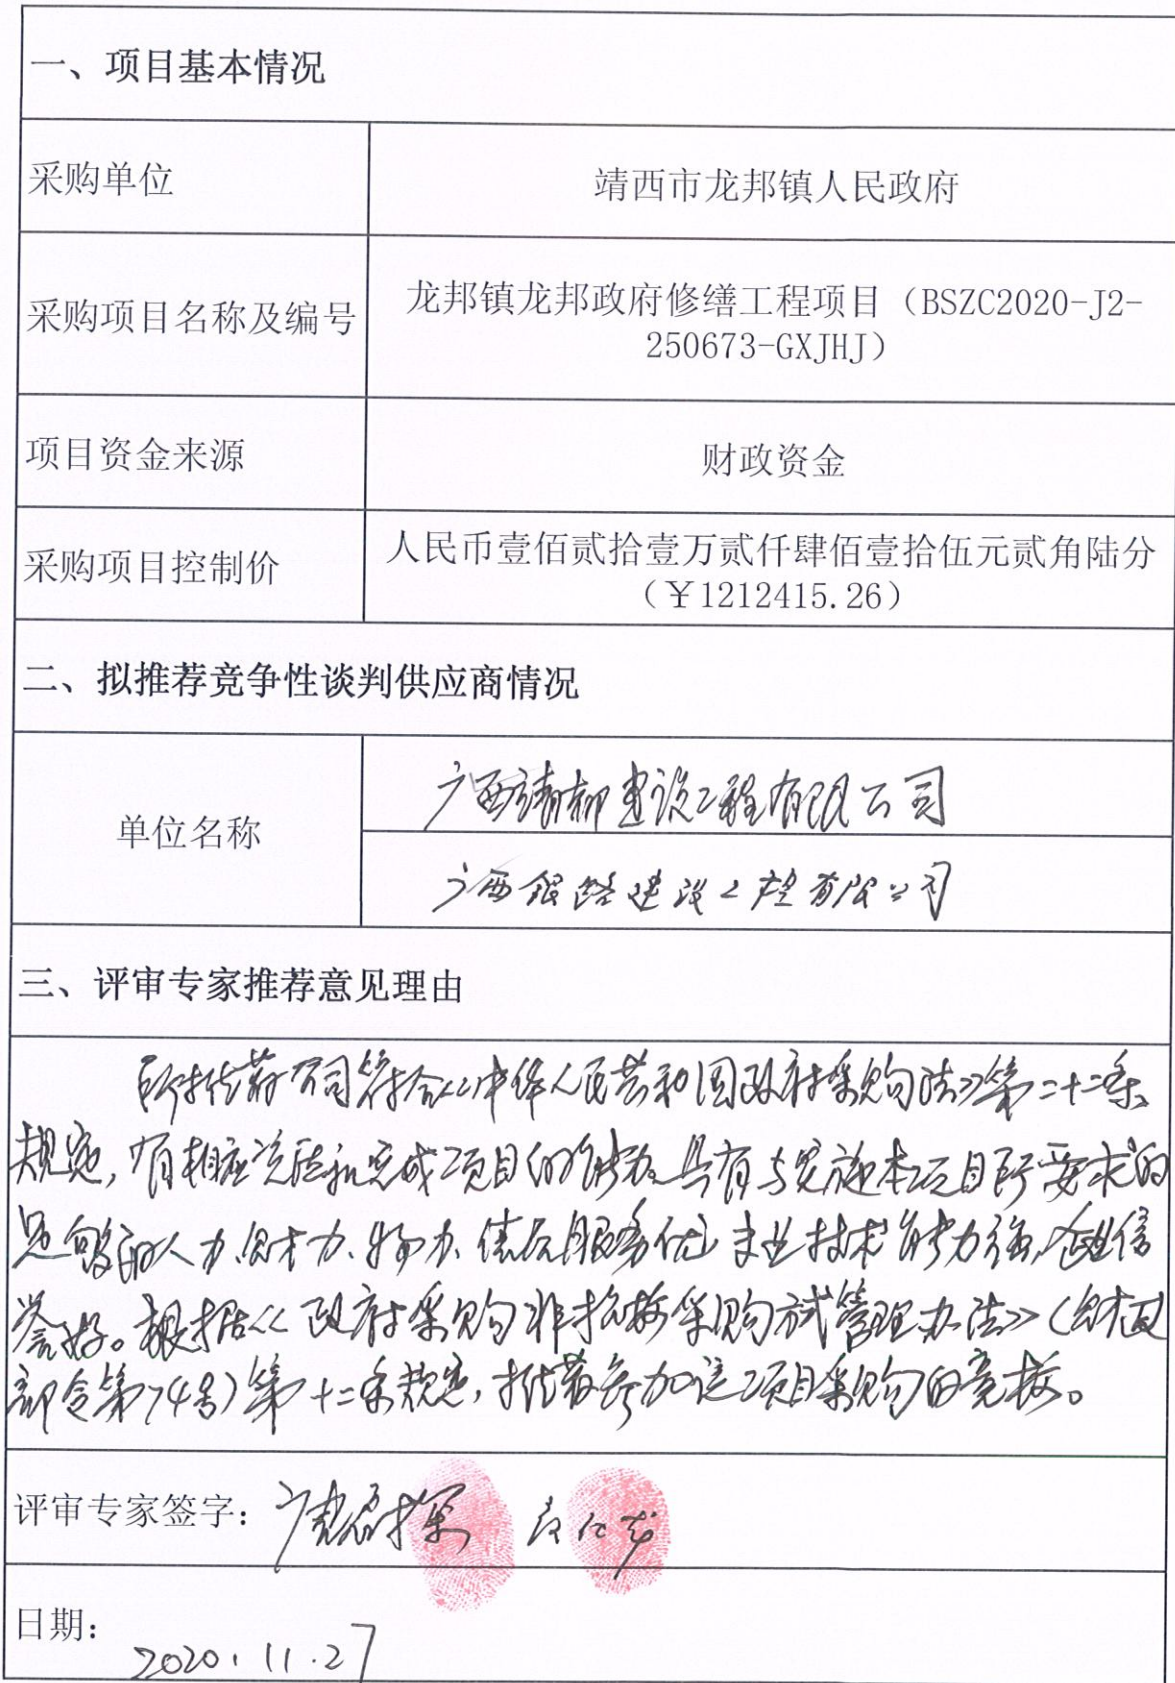 一、项目基本情况
采购单位
靖西市龙邦镇人民政府
采购项目名称及编号
龙邦镇龙邦政府修缮工程项目（BSZC2020-J2-
250673-GXJHJ）
项目资金来源
财政资金
采购项目控制价
人民币壹佰贰拾壹万贰仟肆佰壹拾伍元贰角陆分
（￥1212415.26）
二、拟推荐竞争性谈判供应商情况
单位名称
广西靖柳建设工程有限公司
广西银路建设工程有限公司
三、评审专家推荐意见理由
所推荐公司符合《中华人民共和国政府采购法》第二十二条
规定，有相应资质和完成项目的能力。具有与实施本项目所要求的
足够的人力、财力、物力、售后服务优、专业技术能力强、企业信
誉好。根据《政府采购非招标采购方式管理办法》（财政
部令第74号）第十二条规定，推荐参加这项目采购的竞标。
评审专家签字：
日期：
2020.11.27